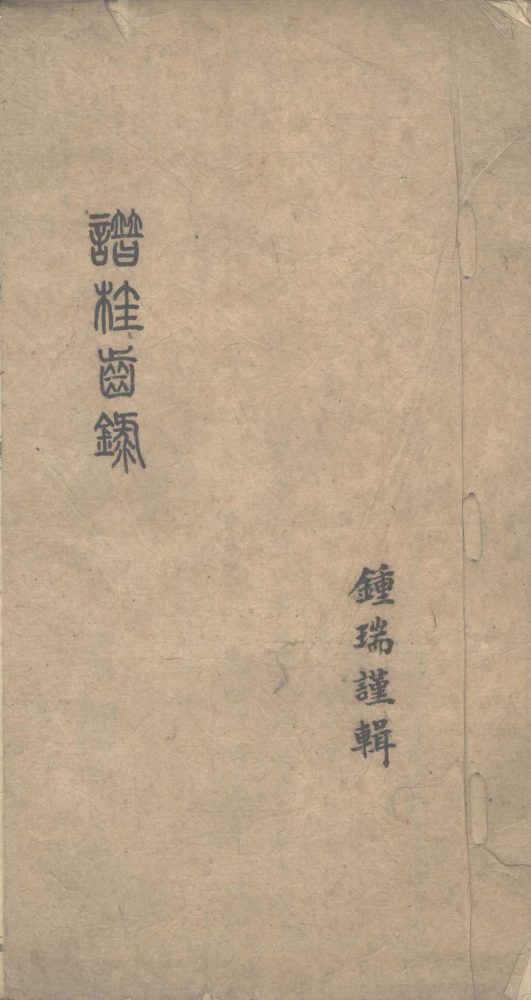 鍾瑞謹輯
譜桂齒錄